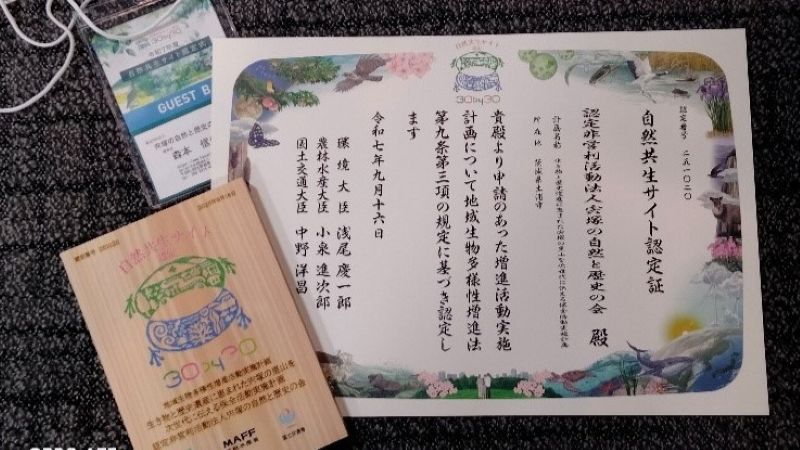 自然共生サイト
30by30
GUEST B
自然共生サイト
30by30
認定番号 二五一〇二〇
自然共生サイト認定証
認定非営利活動法人宍塚の自然と歴史の会 殿
計画名称
所在地 茨城県土浦市
貴殿より申請のあった増進活動実施
計画について地域生物多様性増進法
第九条第三項の規定に基づき認定し
ます
令和七年九月十六日
環境大臣 浅尾慶一郎
農林水産大臣 小泉進次郎
国土交通大臣 中野洋昌
自然共生サイト
認定
30by30
地域生物多様性増進活動実施計画
生き物と歴史遺産に恵まれた宍塚の里山を
次世代に伝える保全活動実施計画
認定非営利活動法人宍塚の自然と歴史の会
MAFF
国土交通省